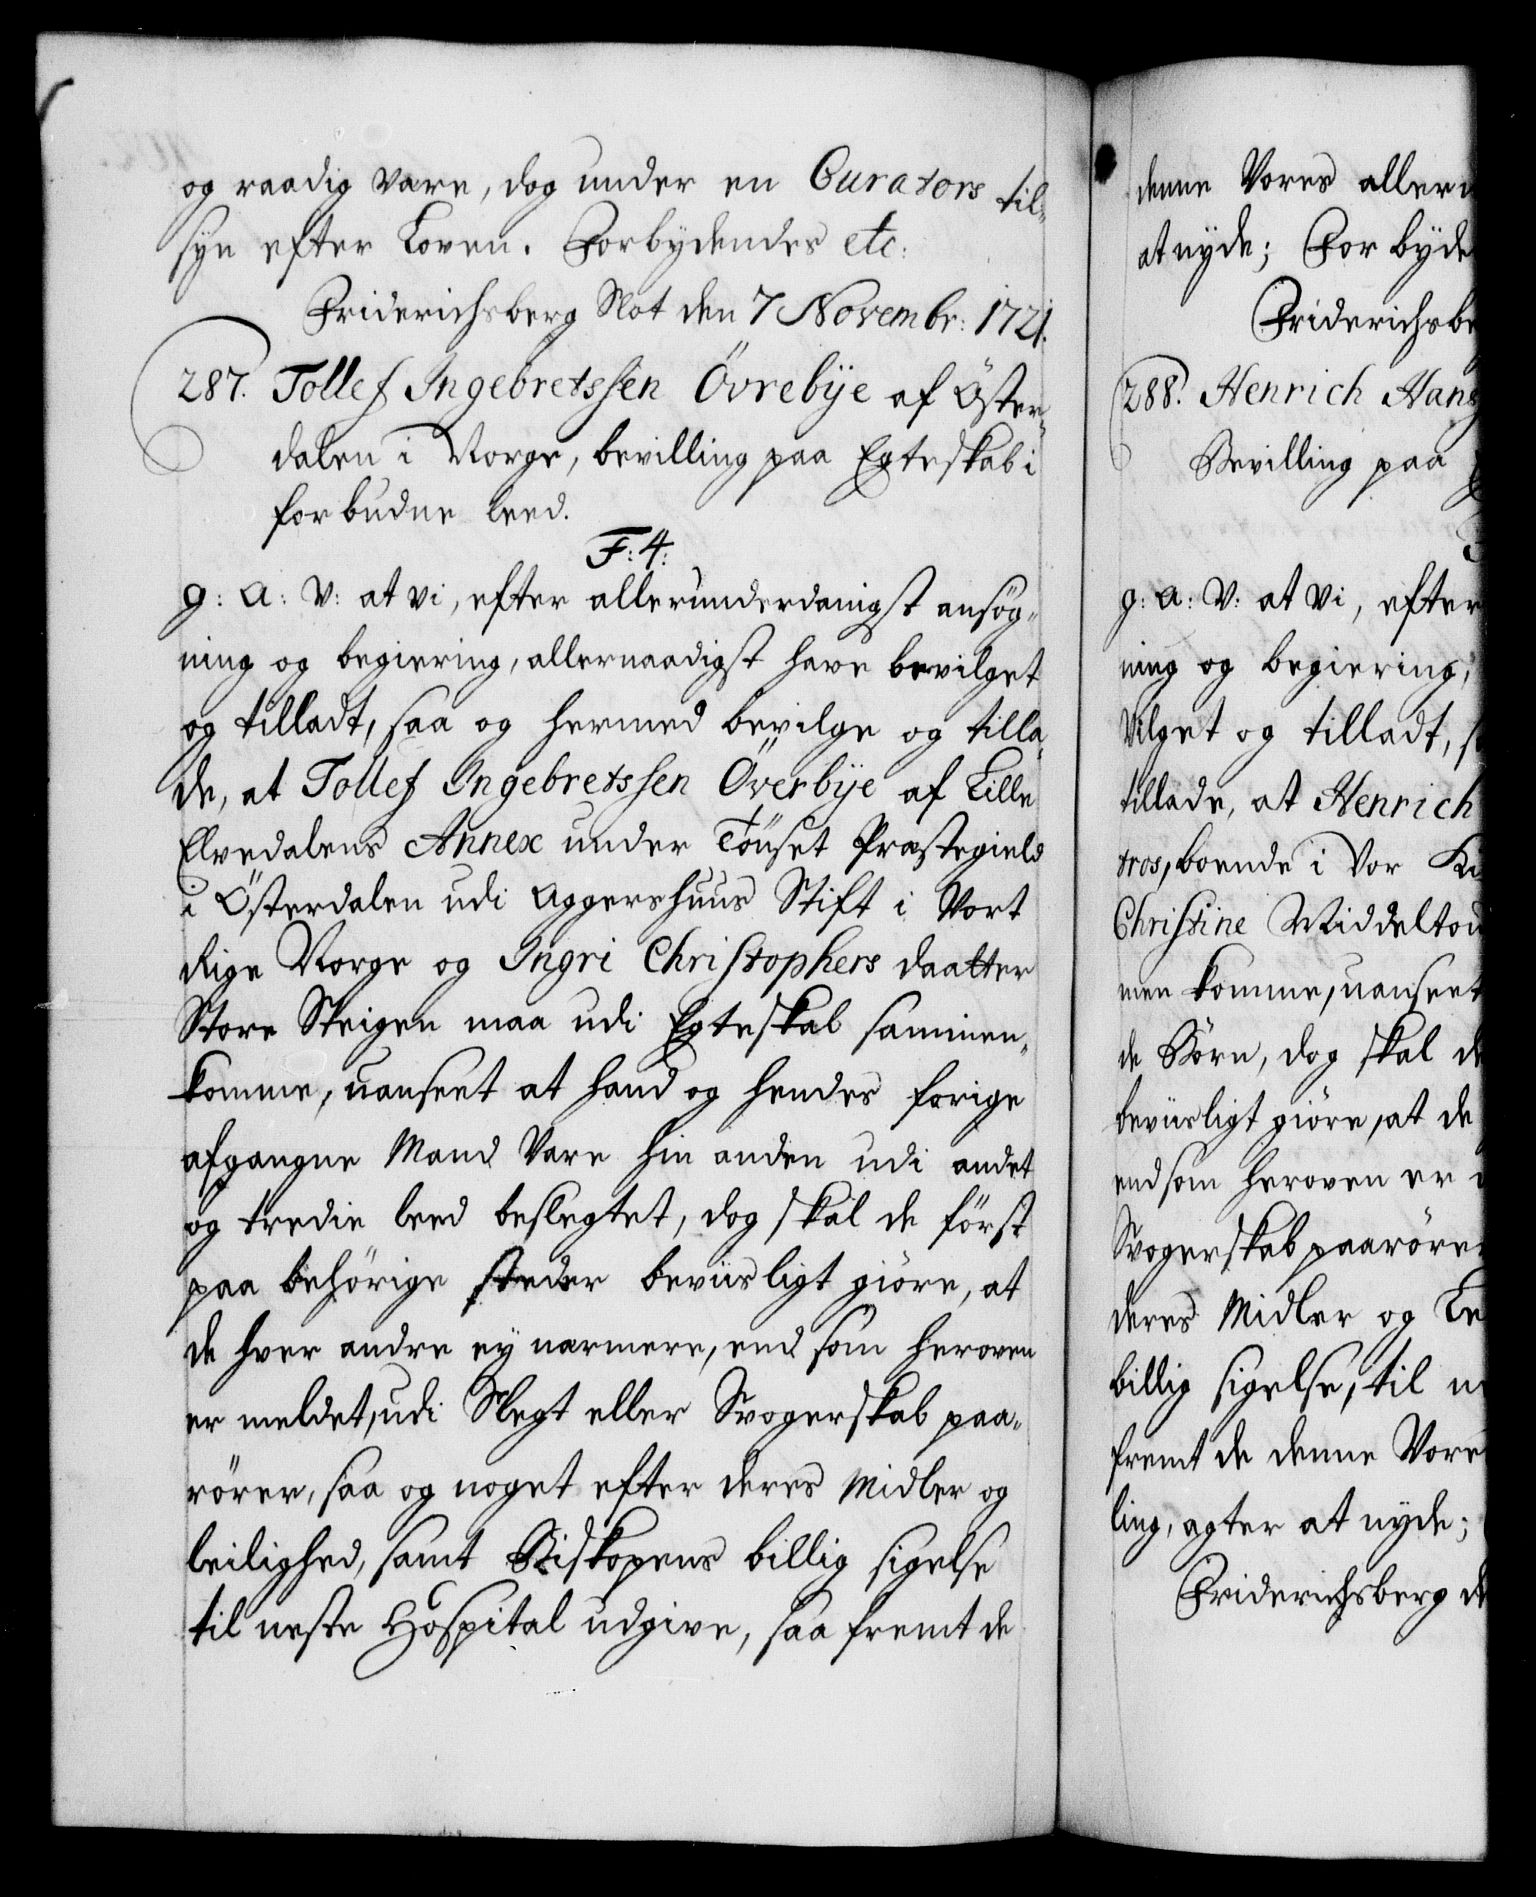 og raadig være, dog under en Curators til-
syn efter Loven. Forbydendes etc:
Friderichsberg Slot den 7 Novembr: 1721.
287. Tollef Ingebretssen Övrebÿe af Öster-
dalen i Norge, bevilling paa Egteskab i
forbudne leed.
F: 4:
g: A: V: at vi, efter allerunderdanigst ansøg-
ning og begiering, allernaadigst have bevilget
og tilladt, saa og hermed bevilge og tilla-
de, at Tollef Ingebretssen Överbÿe af Lille
Elvedalens Annex under Tönset Præstegield
i Österdalen udi Aggershuus Stift i Vort
Rige Norge og Ingri Christophers daatter
Store Steigen maa udi Egteskab sammen-
komme, uanseet at hand og hendes forige
afgangne Mand vare hin anden udi andet
og tredie leed beslegtet, dog skal de först
paa behörige steder beviisligt giöre, at
de hver andre ey nærmere, end som heroven
er meldet, udi Slegt eller Svogerskab paa-
rörer, saa og noget efter deres Midler og
leilighed, samt Biskopens billig sigelse
til neste Hospital udgive, saafremt de
denne Vores allern
at nÿde; Forbyde
Friderichsbe
288. Henrich Hans
Bevilling paa
g: A: V: at Vi, efter
ning og begiering,
vilget og tilladt, s
tillade, at Henrich
tros, boende i Vor
Christine Middeltou
men komme, uanseet
de Börn, dog skal de
beviisligt giöre, at de
end som heroven er
Svogerskab paarörer
deres Midler og Le
billig sigelse, til n
fremt de denne Vore
ling, agter at nyde;
Friderichsberg d